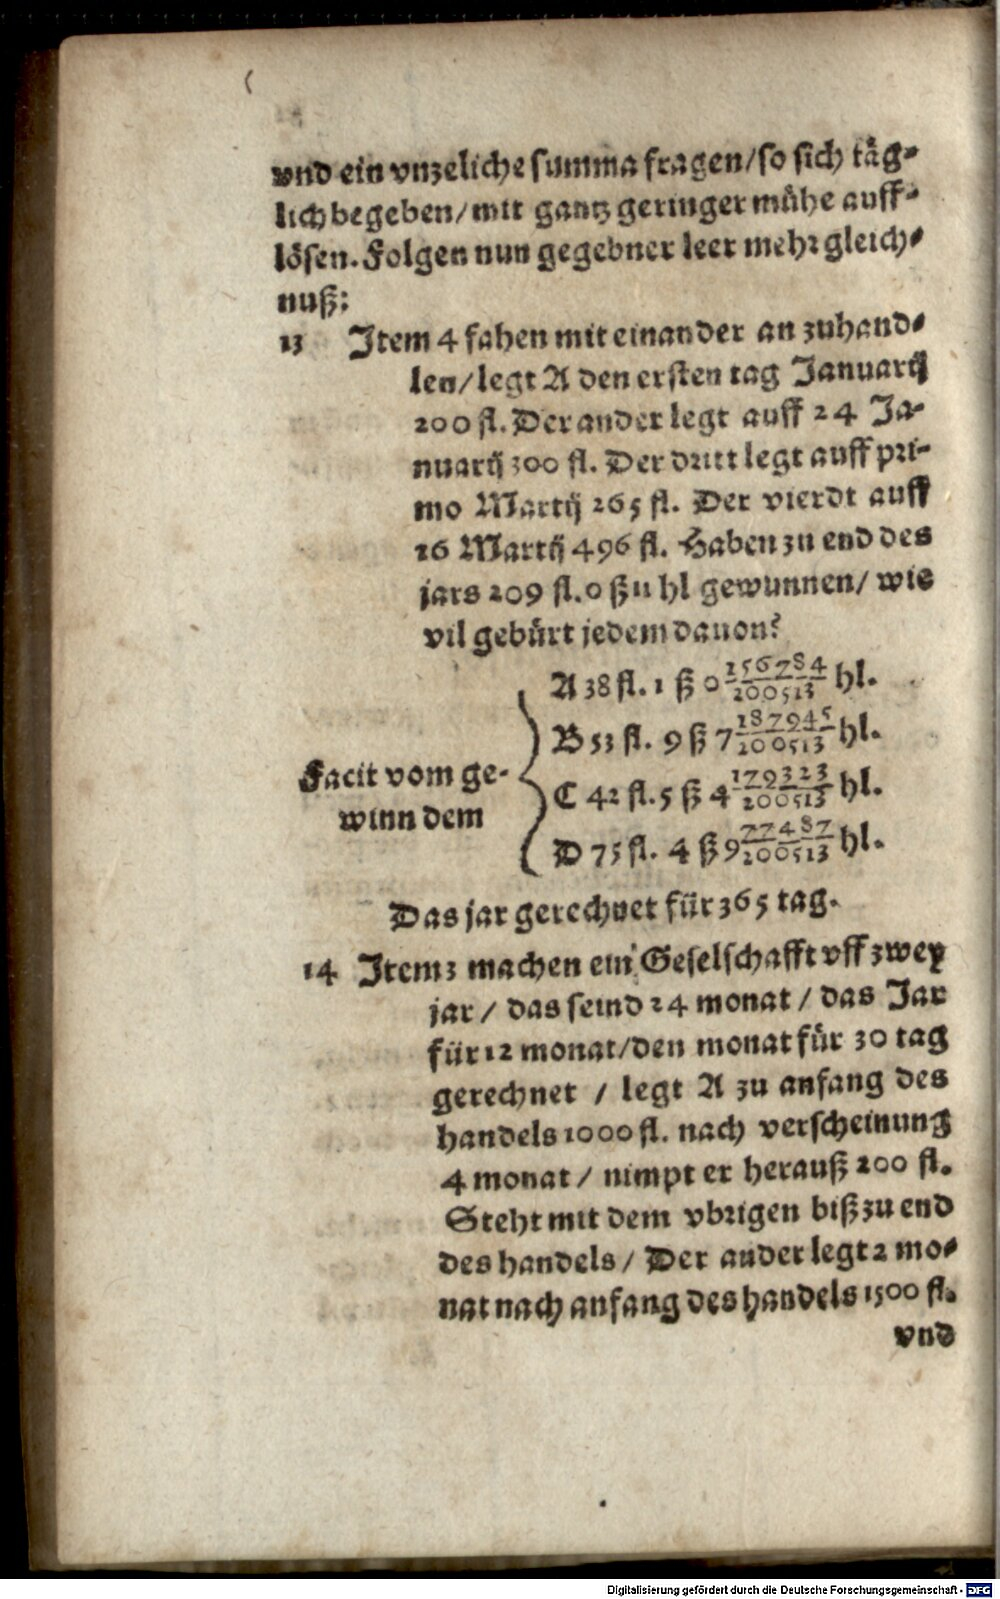 vnd ein vnzeliche summa fragen/so sich täg-
lich begeben/mit gantz geringer mühe auff-
lösen. Folgen nun gegebner leer mehr gleich-
nuß:
13 Item 4 fahen mit einander an zuhand-
len/legt A den ersten tag Januarij
200 fl. Der ander legt auff 24 Ja-
nuarij 300 fl. Der dritt legt auff pri-
mo Martij 265 fl. Der vierdt auff
16 Martij 496 fl. Haben zu end des
jars 209 fl. 0 ß 11 hl gewunnen/ wie
vil gebürt jedem dauon?
A 38 fl. 1 ß 0 156784/200513 hl.
B 53 fl. 9 ß 7 187945/200513 hl.
Facit vom ge-
winn dem
C 42 fl. 5 ß 4 179323/200513 hl.
D 75 fl. 4 ß 9 77487/200513 hl.
Das jar gerechnet für 365 tag.
14 Item 3 machen ein Geselschafft vff zwey
jar / das seind 24 monat / das Jar
für 12 monat/den monat für 30 tag
gerechnet / legt A zu anfang des
handels 1000 fl. nach verscheinung
4 monat / nimpt er herauß 200 fl.
Steht mit dem vbrigen biß zu end
des handels / Der ander legt 2 mo-
nat nach anfang des handels 1500 fl.
vnd
Digitalisierung gefördert durch die Deutsche Forschungsgemeinschaft - DFG